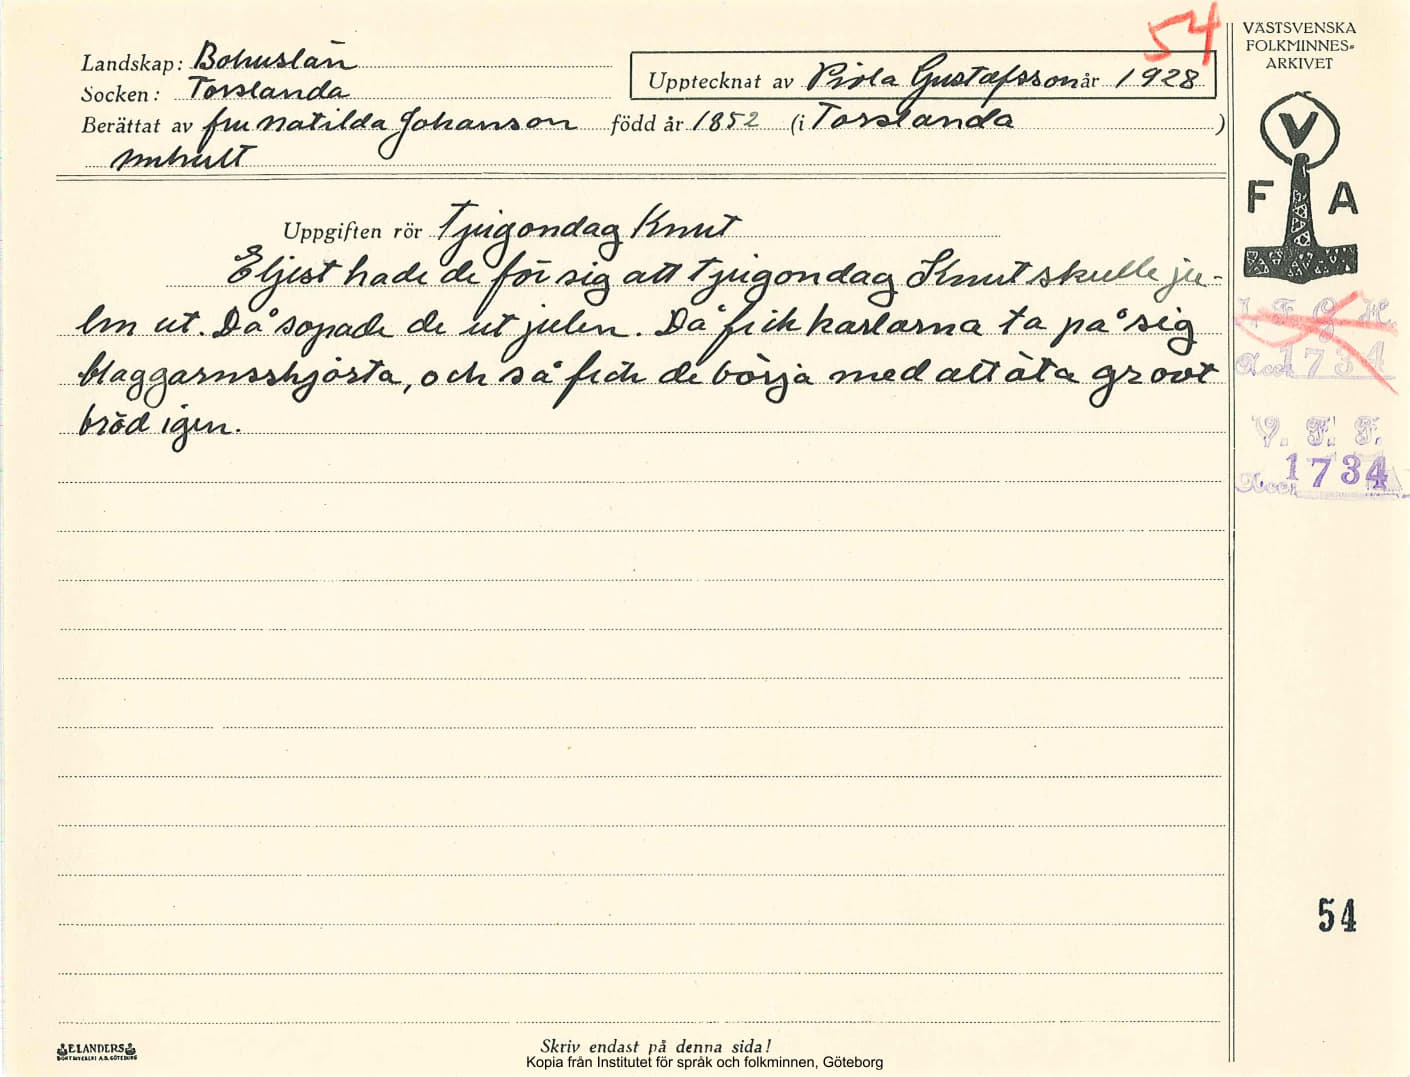 54
VÄSTSVENSKA
FOLKMINNES-
ARKIVET
Landskap: Bohuslän
Socken: Torslanda
Upptecknat av Pirla Gustafsson år 1928
Berättat av fru Matilda Johanson född år 1852 (i Torslanda )
V
F A
Uppgiften rör Tjugondag Knut
Eljest hade de för sig att Tjugondag Knut skulle ju-
len ut. Då sopade de ut julen. Då fick karlarna ta på sig
blaggarnsskjorta, och så fick de börja med att äta grovt
bröd igen.
1734
V. F. F.
Acc. 1734
54
ELANDERS
BOKTRYCKERI A.B. GÖTEBORG
Skriv endast på denna sida!
Kopia från Institutet för språk och folkminnen, Göteborg